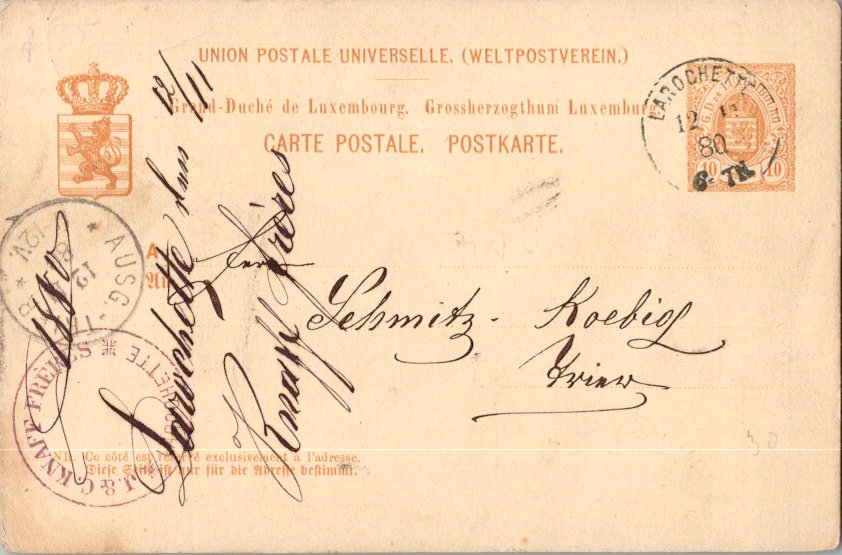 UNION POSTALE UNIVERSELLE. (WELTPOSTVEREIN.)
Grand-Duché de Luxembourg. Grossherzogthum Luxemburg
CARTE POSTALE. POSTKARTE.
LAROCHETTE
12 11
80
6-7N.
10 10
A
An
Herrn
Schmitz-Koebig
Trier
Larochette den 12/11 1880
Knaff frères
AUSG-
12
J. & C. KNAFF FRÈRES
LAROCHETTE
NB. Ce côté est réservé exclusivement à l'adresse.
Diese Seite ist nur für die Adresse bestimmt.
30